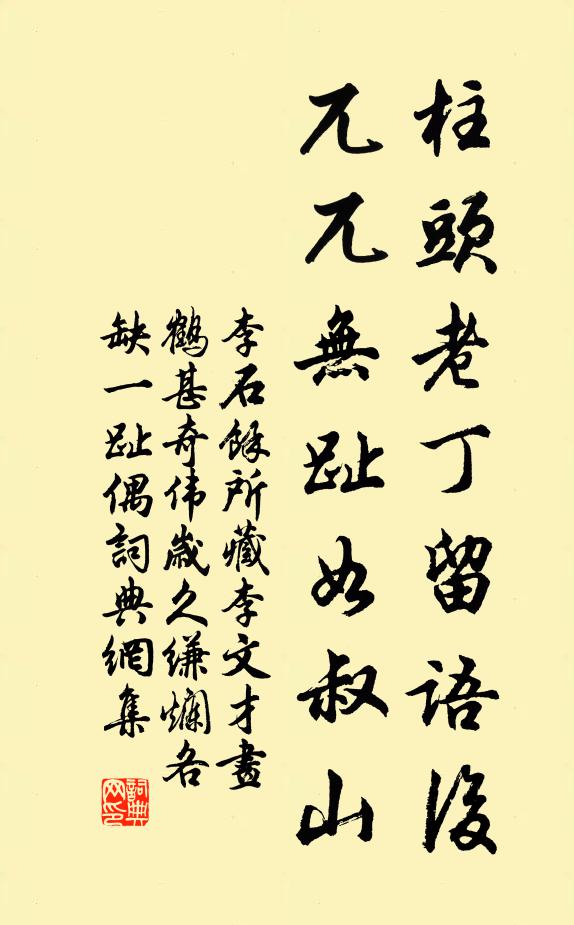 柱頭老丁留語後
兀兀無趾如叔山
李石餘所藏李文才畫
鶴甚奇伟歲久縑爛各
缺一趾偶詞典網集
詞典網印